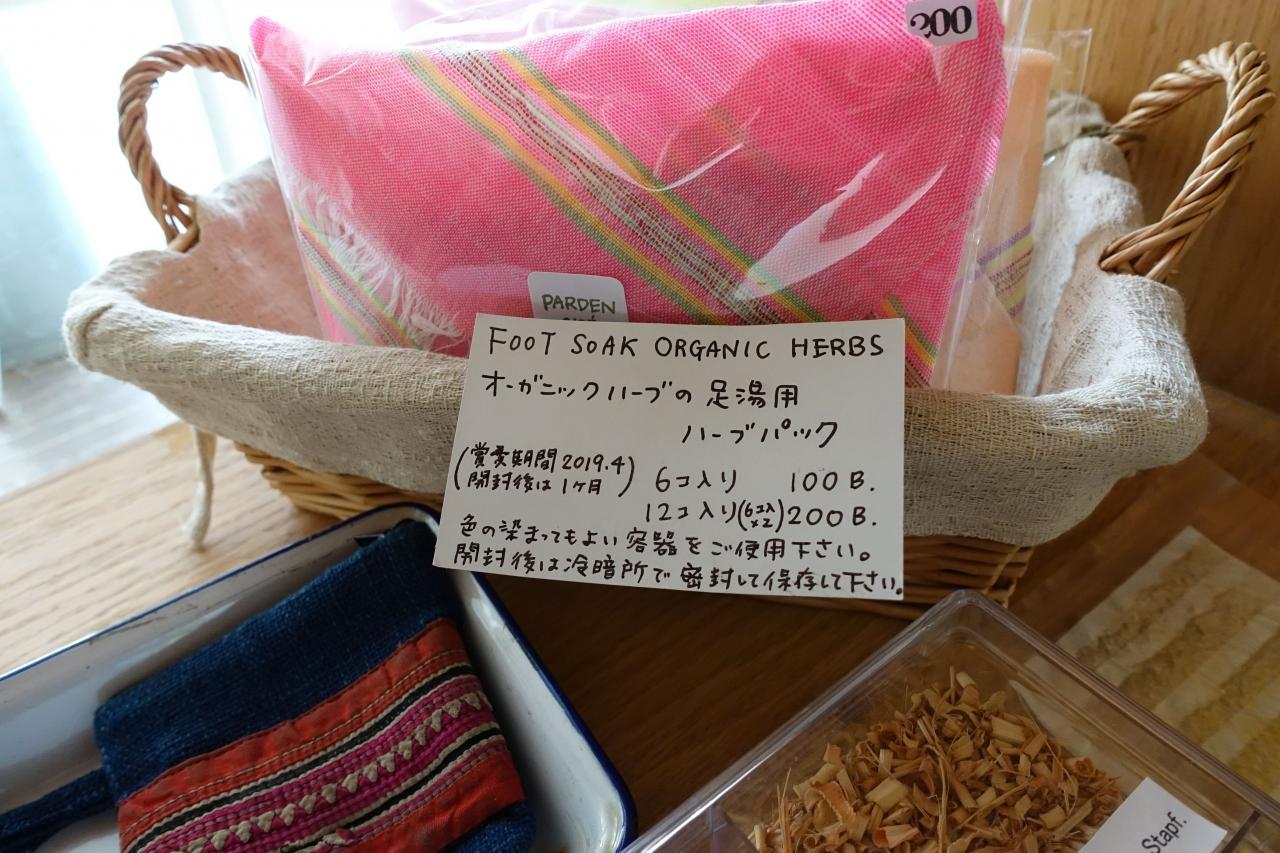 300
PARDEN
FOOT SOAK ORGANIC HERBS
オーガニックハーブの足湯用
ハーブパック
(賞愛期間 2019.4
開封後は1ヶ月)
6コ入り 100B.
12コ入り(6コ入×2)200B.
色の染まってもよい容器をご使用下さい。
開封後は冷暗所で密封して保存して下さい。
Stapf.